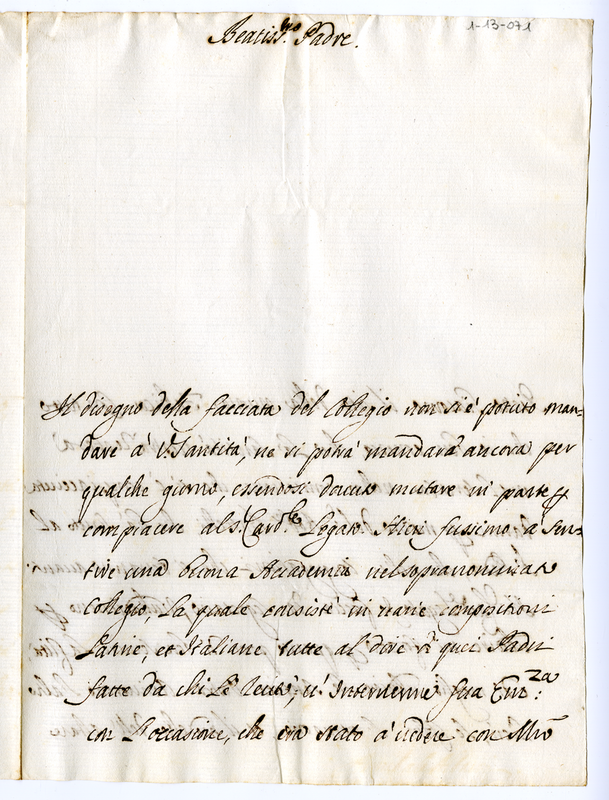 1-13-071
Beatiss.mo Padre.
Il disegno della facciata del Collegio non si è potuto man=
dare à V. Santità, ne si potrà mandarà ancora per
qualche giorno, essendosi douuto mutare in parte p
compiacere al S. Card.le Legato. Hieri fussimo à Sen=
tire una buona Accademia nel sopranominato
Collegio, La quale consistè in uarie compositioni
Latine, et Italiane tutte al dire di quei Padri
fatte da chi Le recitò; ui Interuenne sua Em.za:
con l'occasione, che era stato à uedere con Mro